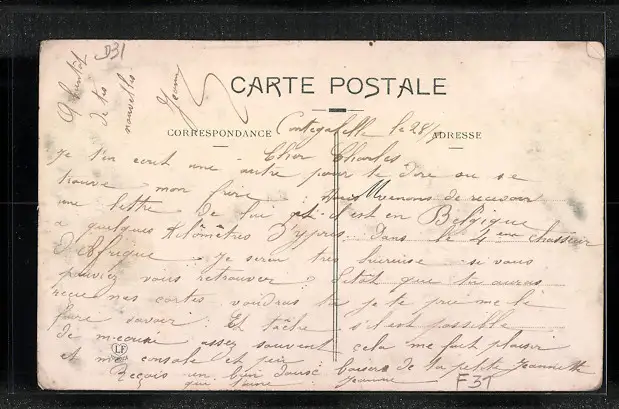 D31
A bientôt
de tes
nouvelles
Jeanne
CARTE POSTALE
CORRESPONDANCE
ADRESSE
le 28/
Cher Charles
Je t'en ecrit une autre pour te dire ou se
trouve mon frère nous venons de recevoir
une lettre de lui et il est en Belgique
a quelques Kilômètres d'ypres. Dans le 4 eme chasseur
d'Afrique Je serai très hureuse si vous
pouviez vous retrouver Sitôt que tu auras
reçue mes cartes voudras tu je te prie me le
faire savoir. Et tâche s'il est possible
de m'ecrire assez souvent cela me fait plaisir
et me console et puis
Reçois un bon baisers de ta petite Jeannette
qui t'aime Jeanne
LF
F31